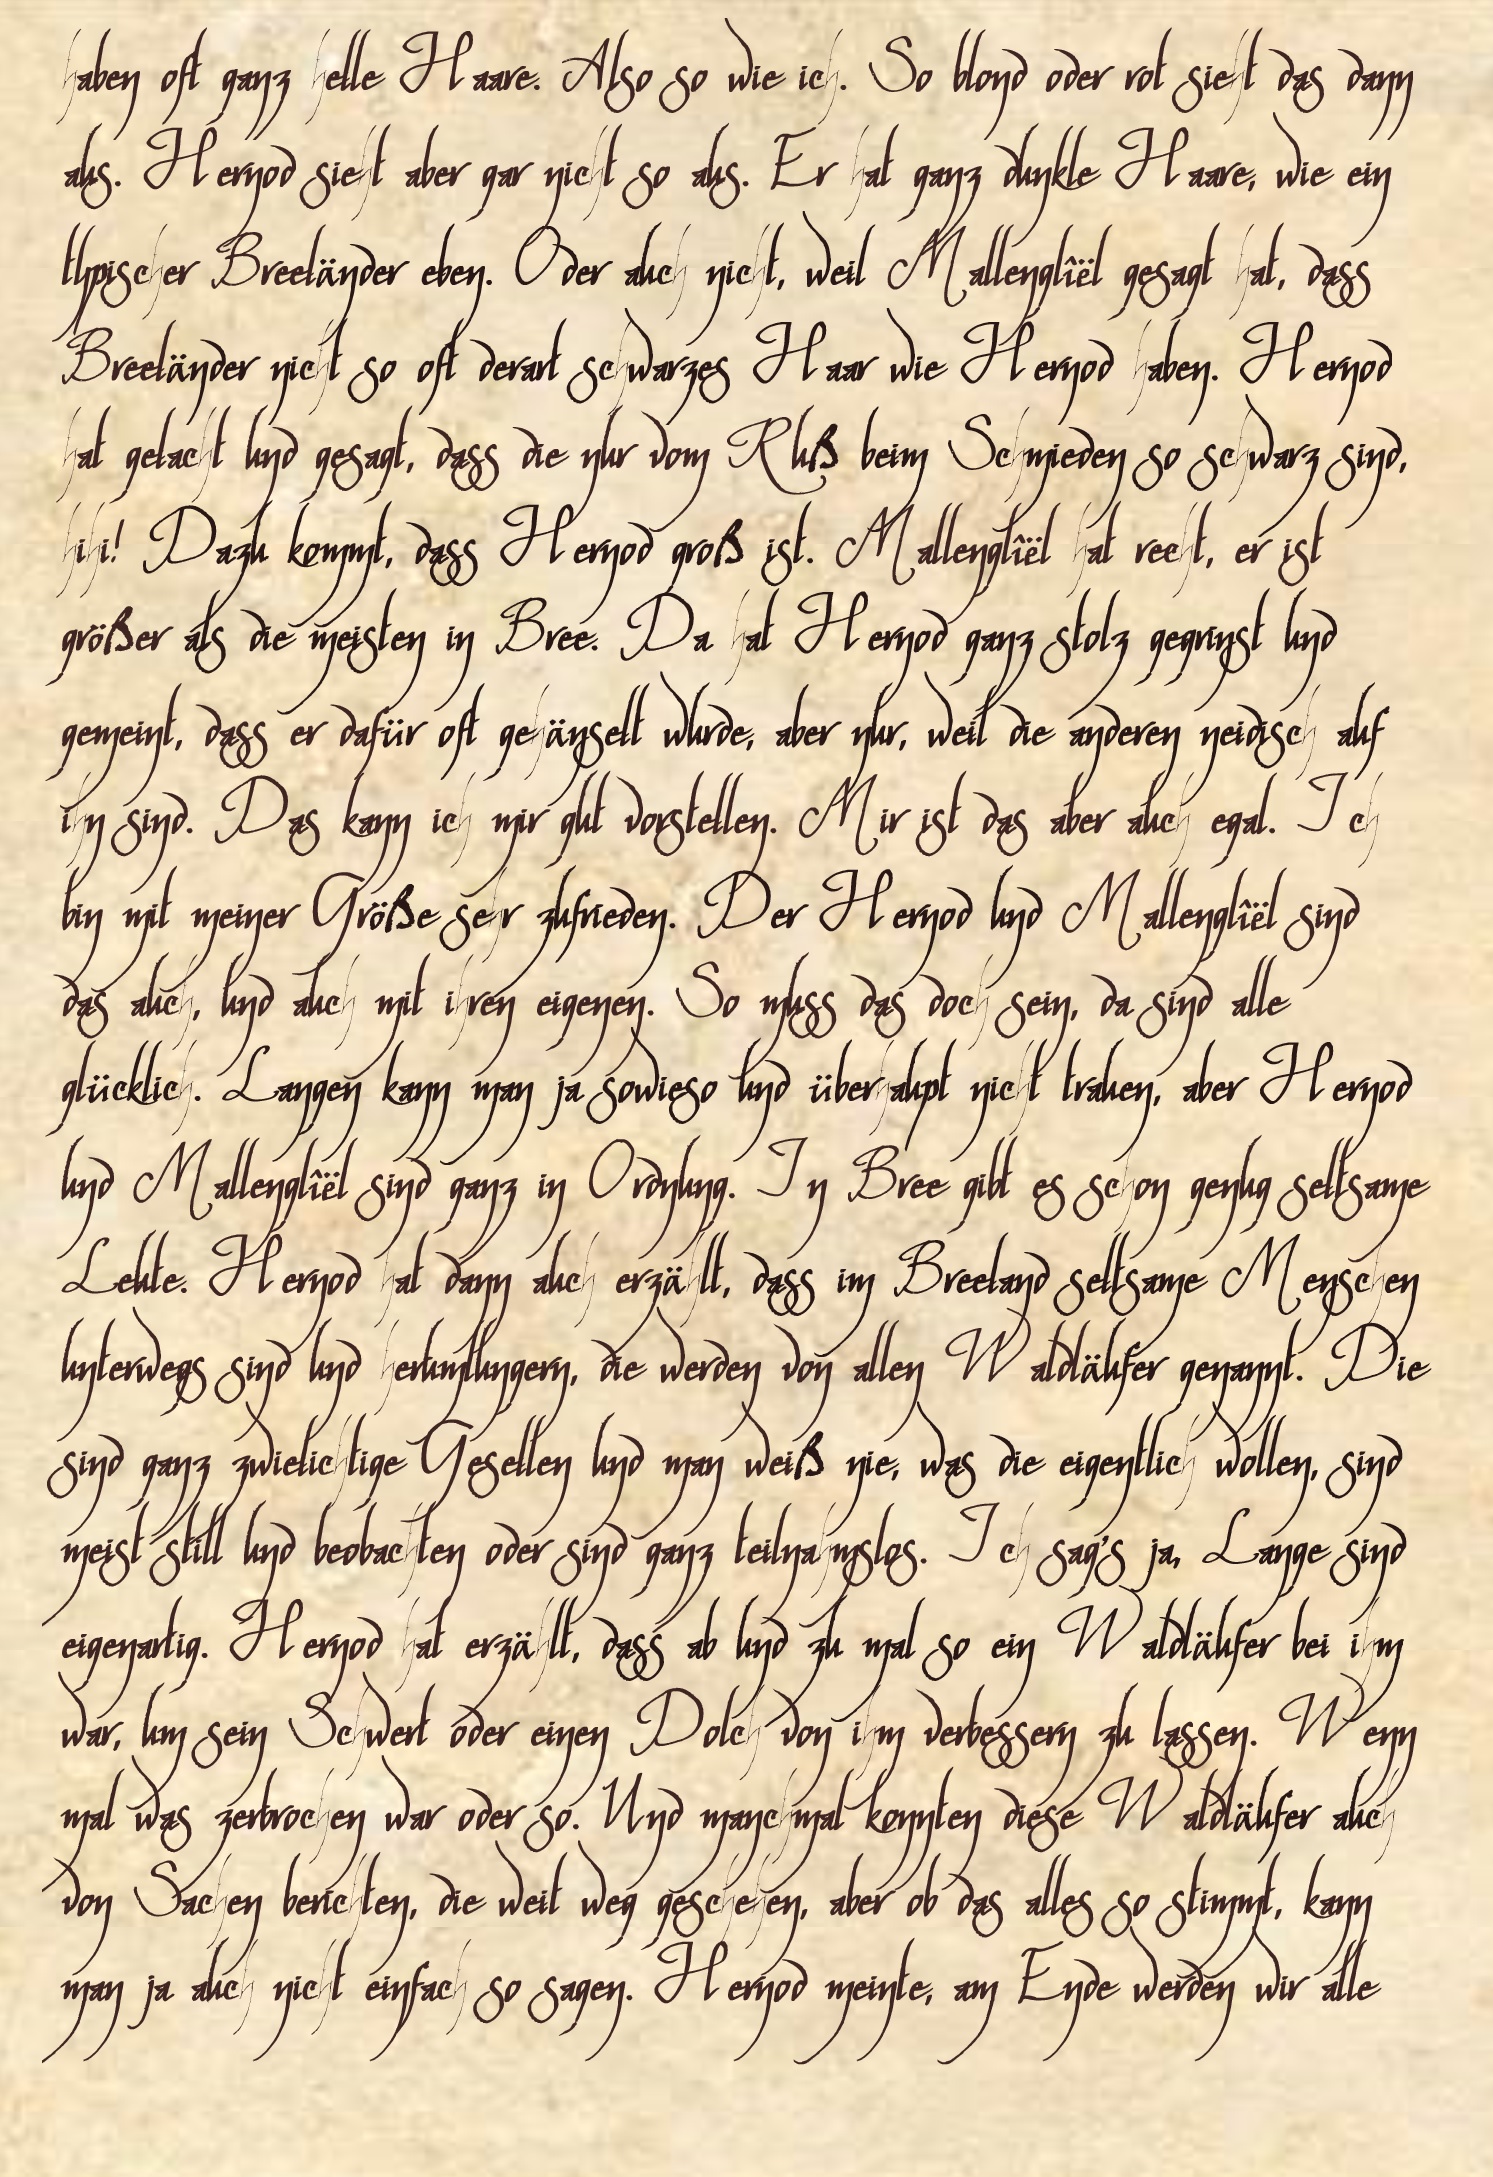 haben oft ganz helle Haare. Also so wie ich. So blond oder rot sieht das dann
aus. Hernod sieht aber gar nicht so aus. Er hat ganz dunkle Haare, wie ein
typischer Breeländer eben. Oder auch nicht, weil Mallenglîël gesagt hat, dass
Breeländer nicht so oft derart schwarzes Haar wie Hernod haben. Hernod
hat gelacht und gesagt, dass die nur vom Ruß beim Schmieden so schwarz sind,
hihi! Dazu kommt, dass Hernod groß ist. Mallenglîël hat recht, er ist
größer als die meisten in Bree. Da hat Hernod ganz stolz gegrinst und
gemeint, dass er dafür oft gehänselt wurde, aber nur, weil die anderen neidisch auf
ihn sind. Das kann ich mir gut vorstellen. Mir ist das aber auch egal. Ich
bin mit meiner Größe sehr zufrieden. Der Hernod und Mallenglîël sind
das auch, und auch mit ihren eigenen. So muss das doch sein, da sind alle
glücklich. Langen kann man ja sowieso und überhaupt nicht trauen, aber Hernod
und Mallenglîël sind ganz in Ordnung. In Bree gibt es schon genug seltsame
Leute. Hernod hat dann auch erzählt, dass im Breeland seltsame Menschen
unterwegs sind und herumlungern, die werden von allen Waldläufer genannt. Die
sind ganz zwielichtige Gesellen und man weiß nie, was die eigentlich wollen, sind
meist still und beobachten oder sind ganz teilnahmslos. Ich sag's ja, Lange sind
eigenartig. Hernod hat erzählt, dass ab und zu mal so ein Waldläufer bei ihm
war, um sein Schwert oder einen Dolch von ihm verbessern zu lassen. Wenn
mal was zerbrochen war oder so. Und manchmal konnten diese Waldläufer auch
von Sachen berichten, die weit weg geschehen, aber ob das alles so stimmt, kann
man ja auch nicht einfach so sagen. Hernod meinte, am Ende werden wir alle